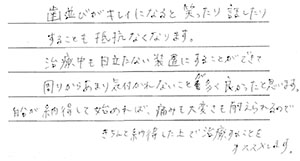 歯並びがキレイになると笑ったり話したり
することも抵抗なくなります。
治療中も目立たない装置にすることができて
周りからあまり気付かれないことも多く良かったと思います。
自分が納得して始めれば、痛みも大変さも耐えられるので
きちんと納得した上で治療することを
オススメします。